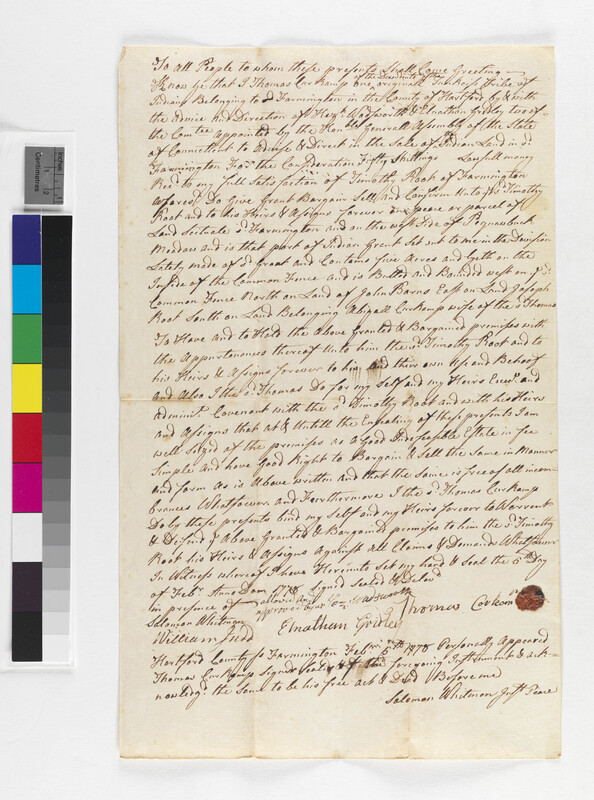 To all People to whom these presents Shall Come Greeting
Know ye that I Thomas Curkomp one of the Descendants of the originall Tunkxis Tribe of
Indians Belonging to sd Farmington in the County of Hartford by & with
the advice and Direction of Hezh Wadsworth & Elnathan Gridley two of
the Comtee Appointed by the Honble Generall Assembly of the State
of Connecticut to Advise & Direct in the Sale of Indian Land in sd
Farmington For the Consideration Fifty Shillings Lawfull money
Recd to my full Satisfaction of Timothy Root of Farmington
aforesd Do Give Grant Bargain Sell and Confirm Unto ye sd Timothy
Root and to his Heirs & Assigns forever one peace or parcel of
Land Scituate sd Farmington and on the west Side of
Meadow and is that part of Indian Grant Set out to me in the Devision
Lately made of sd Grant and Contains five Acres and Lyeth on the
Inside of the Common Fence and is Butted and Bounded west on sd
Common Fence North on Land of John Barns East on Land Joseph
Root South on Land Belonging Abigail Curkomp wife of the sd Thomas
To Have and to Hold the Above Granted & Bargained premises with
the Appurtenances thereof Unto him the sd Timothy Root and to
his Heirs & Assigns forever to him and their own Use and Behoof
and Also I the sd Thomas Do for my Self and my Heirs Execrs and
Adminrs Covenant with the sd Timothy Root and with his Heirs
and Assigns that at & Untill the Ensealing of these presents I am
well Seized of the premises as a Good Indefeasable Estate in fee
Simple and have Good Right to Bargain & Sell the Same in Manner
and form as is Above written and that the Same is free of all incum-
brances Whatsoever and Forthermore I the sd Thomas Curkomp
Do by these presents bind my Self and my Heirs forever to Warrent
& Defend ye Above Granted & Bargaind premises to him the sd Timothy
Root his Heirs & Assigns Against All Claims & Demands Whatsoever
In Witness whereof I have Hereunto Set my hand & Seal the 5th Day
of Febr Anno Dom 1778 Signd Seald & Deliverd
in presence of allowed and
approved by us Wadsworth
Solomon Whitman Thomas Corkom
William Judd Elnathan Gridley
Hartford County ss Farmington Febr 5th 1878 Personally Appeared
Thomas Curkomp Signer & of the foregoing Instrument & ack-
nowledgd the Same to be his free act & Deed Before me
Solomon Whitman Just Peace
Centimetres
Inches